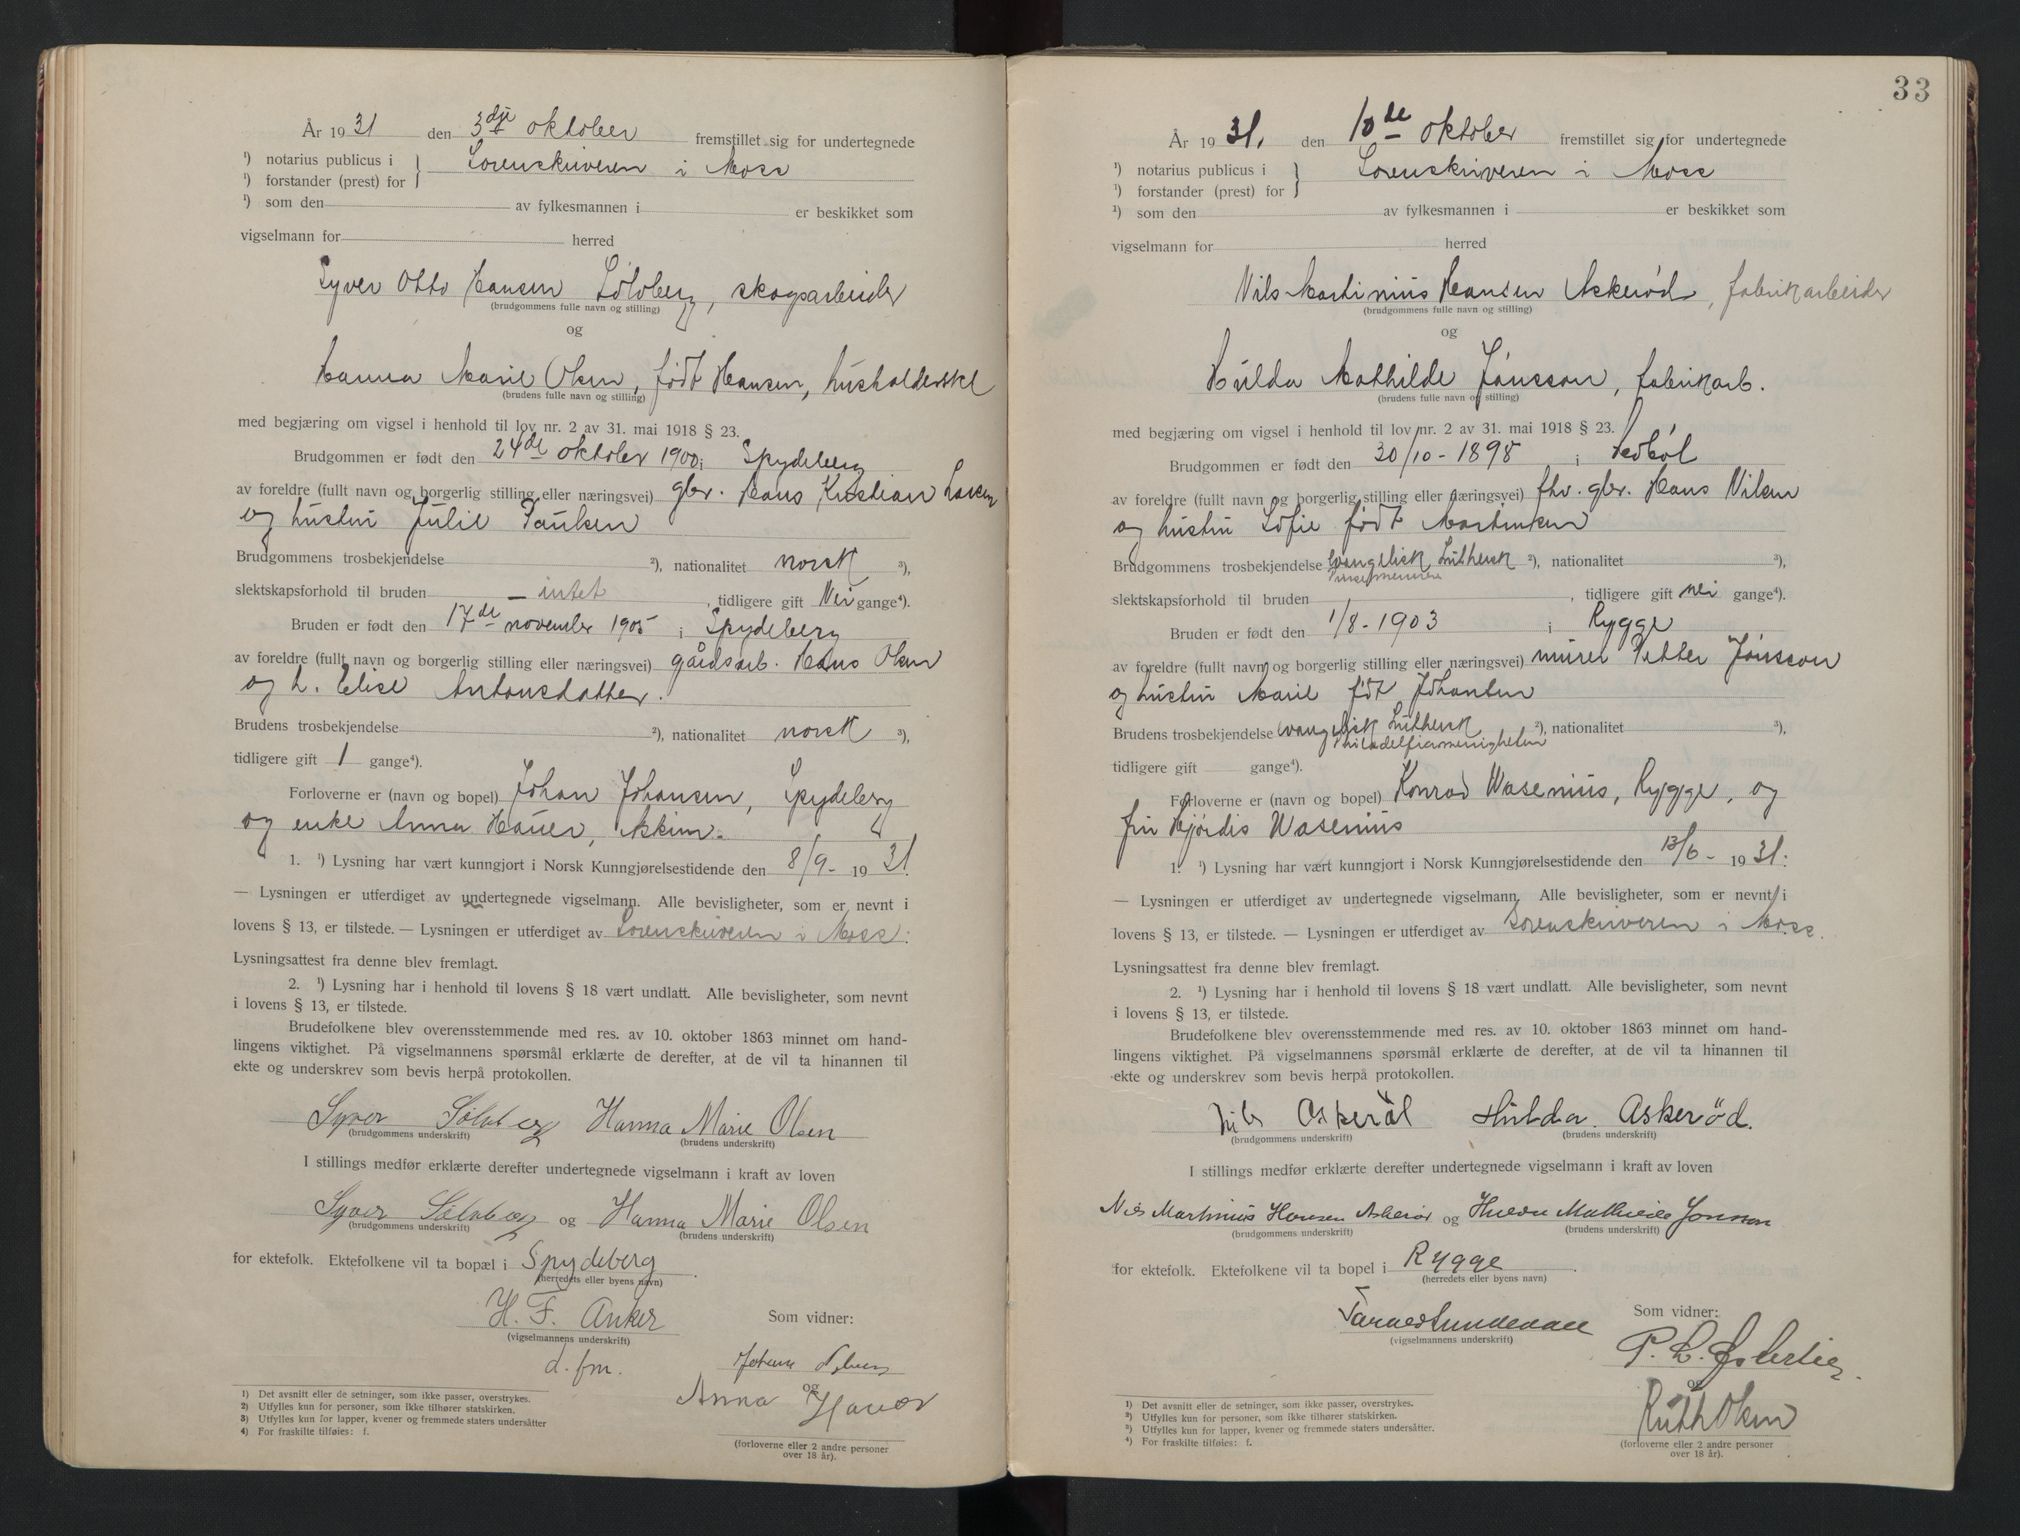 År 1931 den 3dje oktober fremstillet sig for undertegnede
¹) notarius publicus i } Sorenskriveren i Moss
¹) forstander (prest) for
¹) som den av fylkesmannen i er beskikket som
vigselmann for herred
Syver Otto Hansen Sølvberg, skogsarbeider
(brudgommens fulle navn og stilling)
og
Hanna Marie Olsen, født Hansen, husholderske
(brudens fulle navn og stilling)
med begjæring om vigsel i henhold til lov nr. 2 av 31. mai 1918 § 23.
Brudgommen er født den 24de oktober 1900 i Spydeberg
av foreldre (fullt navn og borgerlig stilling eller næringsvei) gbr. Hans Kristian Larsen
og hustru Julie Paulsen
Brudgommens trosbekjendelse ²), nationalitet norsk ³),
slektskapsforhold til bruden – intet , tidligere gift Nei gange⁴).
Bruden er født den 17de november 1905 i Spydeberg
av foreldre (fullt navn og borgerlig stilling eller næringsvei) gårdsarb. Hans Olsen
og h. Elise Antonsdatter.
Brudens trosbekjendelse ²), nationalitet norsk ³),
tidligere gift 1 gange⁴).
Forloverne er (navn og bopel) Johan Johansen, Spydeberg
og enke Anna Hauer, Askim.
1. ¹) Lysning har vært kunngjort i Norsk Kunngjørelsestidende den 8/9- 1931.
— Lysningen er utferdiget av undertegnede vigselmann. Alle bevisligheter, som er nevnt i
lovens § 13, er tilstede. — Lysningen er utferdiget av Sorenskriveren i Moss.
Lysningsattest fra denne blev fremlagt.
2. ¹) Lysning har i henhold til lovens § 18 vært undlatt. Alle bevisligheter, som nevnt
i lovens § 13, er tilstede.
Brudefolkene blev overensstemmende med res. av 10. oktober 1863 minnet om hand-
lingens viktighet. På vigselmannens spørsmål erklærte de derefter, at de vil ta hinannen til
ekte og underskrev som bevis herpå protokollen.
Syver Sølvberg Hanna Marie Olsen
(brudgommens underskrift) (brudens underskrift)
I stillings medfør erklærte derefter undertegnede vigselmann i kraft av loven
Syver Sølvberg og Hanna Marie Olsen
(brudgommens underskrift) (brudens underskrift)
for ektefolk. Ektefolkene vil ta bopæl i Spydeberg
(herredets eller byens navn)
H. F. Anker Som vidner:
(vigselmannens underskrift)
d. fm.
Johan
og
Anna Hauer
(forloverne eller 2 andre personer
over 18 år).
1) Det avsnitt eller de setninger, som ikke passer, overstrykes.
2) Utfylles kun for personer, som ikke tilhører statskirken.
3) Utfylles kun for lapper, kvener og fremmede staters undersåtter
4) For fraskilte tilføies: f.
33
År 1931. den 10de oktober fremstillet sig for undertegnede
¹) notarius publicus i } Sorenskriveren i Moss
¹) forstander (prest) for
¹) som den av fylkesmannen i er beskikket som
vigselmann for herred
Nils Martinius Hansen Askerød, fabrikarbeider
(brudgommens fulle navn og stilling)
og
Hulda Mathilde Jonsson, fabrikarb.
(brudens fulle navn og stilling)
med begjæring om vigsel i henhold til lov nr. 2 av 31. mai 1918 § 23.
Brudgommen er født den 30/10 - 1898 i
av foreldre (fullt navn og borgerlig stilling eller næringsvei) fhv. gbr. Hans Nilsen
og hustru Sofie født Martinsen
Brudgommens trosbekjendelse evangelisk Luthersk ²), nationalitet ³),
Pinsevennene
slektskapsforhold til bruden , tidligere gift nei gange⁴).
Bruden er født den 1/8 - 1903 i Rygge
av foreldre (fullt navn og borgerlig stilling eller næringsvei) murer Petter Jonsson
og hustru Marie født Johansen
Brudens trosbekjendelse evangelisk Luthersk ²), nationalitet ³),
Philadelfiamenigheten
tidligere gift gange⁴).
Forloverne er (navn og bopel) Konrad Wasenius, Rygge, og
fru Hjørdis Wasenius
1. ¹) Lysning har vært kunngjort i Norsk Kunngjørelsestidende den 13/6 - 1931.
— Lysningen er utferdiget av undertegnede vigselmann. Alle bevisligheter, som er nevnt i
lovens § 13, er tilstede. — Lysningen er utferdiget av Sorenskriveren i Moss.
Lysningsattest fra denne blev fremlagt.
2. ¹) Lysning har i henhold til lovens § 18 vært undlatt. Alle bevisligheter, som nevnt
i lovens § 13, er tilstede.
Brudefolkene blev overensstemmende med res. av 10. oktober 1863 minnet om hand-
lingens viktighet. På vigselmannens spørsmål erklærte de derefter, at de vil ta hinannen til
ekte og underskrev som bevis herpå protokollen.
Nils Askerød Hulda Askerød.
(brudgommens underskrift) (brudens underskrift)
I stillings medfør erklærte derefter undertegnede vigselmann i kraft av loven
Nils Martinius Hansen Askerød og Hulda Mathilde Jonsson
(brudgommens underskrift) (brudens underskrift)
for ektefolk. Ektefolkene vil ta bopel i Rygge
(herredets eller byens navn)
Som vidner:
(vigselmannens underskrift)
P. L.
og
Ruth Olsen
(forloverne eller 2 andre personer
over 18 år).
¹) Det avsnitt eller de setninger, som ikke passer, overstrykes.
²) Utfylles kun for personer, som ikke tilhører statskirken.
³) Utfylles kun for lapper, kvener og fremmede staters undersåtter.
⁴) For fraskilte tilføies: f.